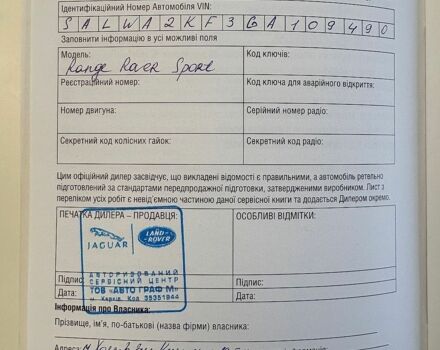 Ідентифікаційний Номер Автомобіля VIN:
S A L W A 2 K F 3 G A 1 0 9 4 9 0
Заповнити інформацію в усі можливі поля
Модель: Код ключів:
Range Rover Sport
Реєстраційний номер: Код ключа для аварійного відкриття:
Номер двигуна: Серійний номер радіо:
Секретний код колісних гайок: Секретний код радіо:
Цим офіційний дилер засвідчує, що викладені відомості є правильними, а автомобіль ретельно
підготовлений за стандартами передпродажної підготовки, затвердженими виробником. Лист з
переліком усіх робіт є невід'ємною частиною даної сервісної книги та додається Дилером окремо.
ПЕЧАТКА ДИЛЕРА – ПРОДАВЦЯ: ОСОБЛИВІ ВІДМІТКИ:
JAGUAR
LAND-ROVER
АВТОРИЗОВАНИЙ
СЕРВІСНИЙ ЦЕНТР
ТОВ "АВТО ГРАФ М"
м. Харків, Код 35351944
Підпис: Підпис:
Дата: Дата:
Інформація про Власника:
Прізвище, ім'я, по-батькові (назва фірми) власника:
Адреса: